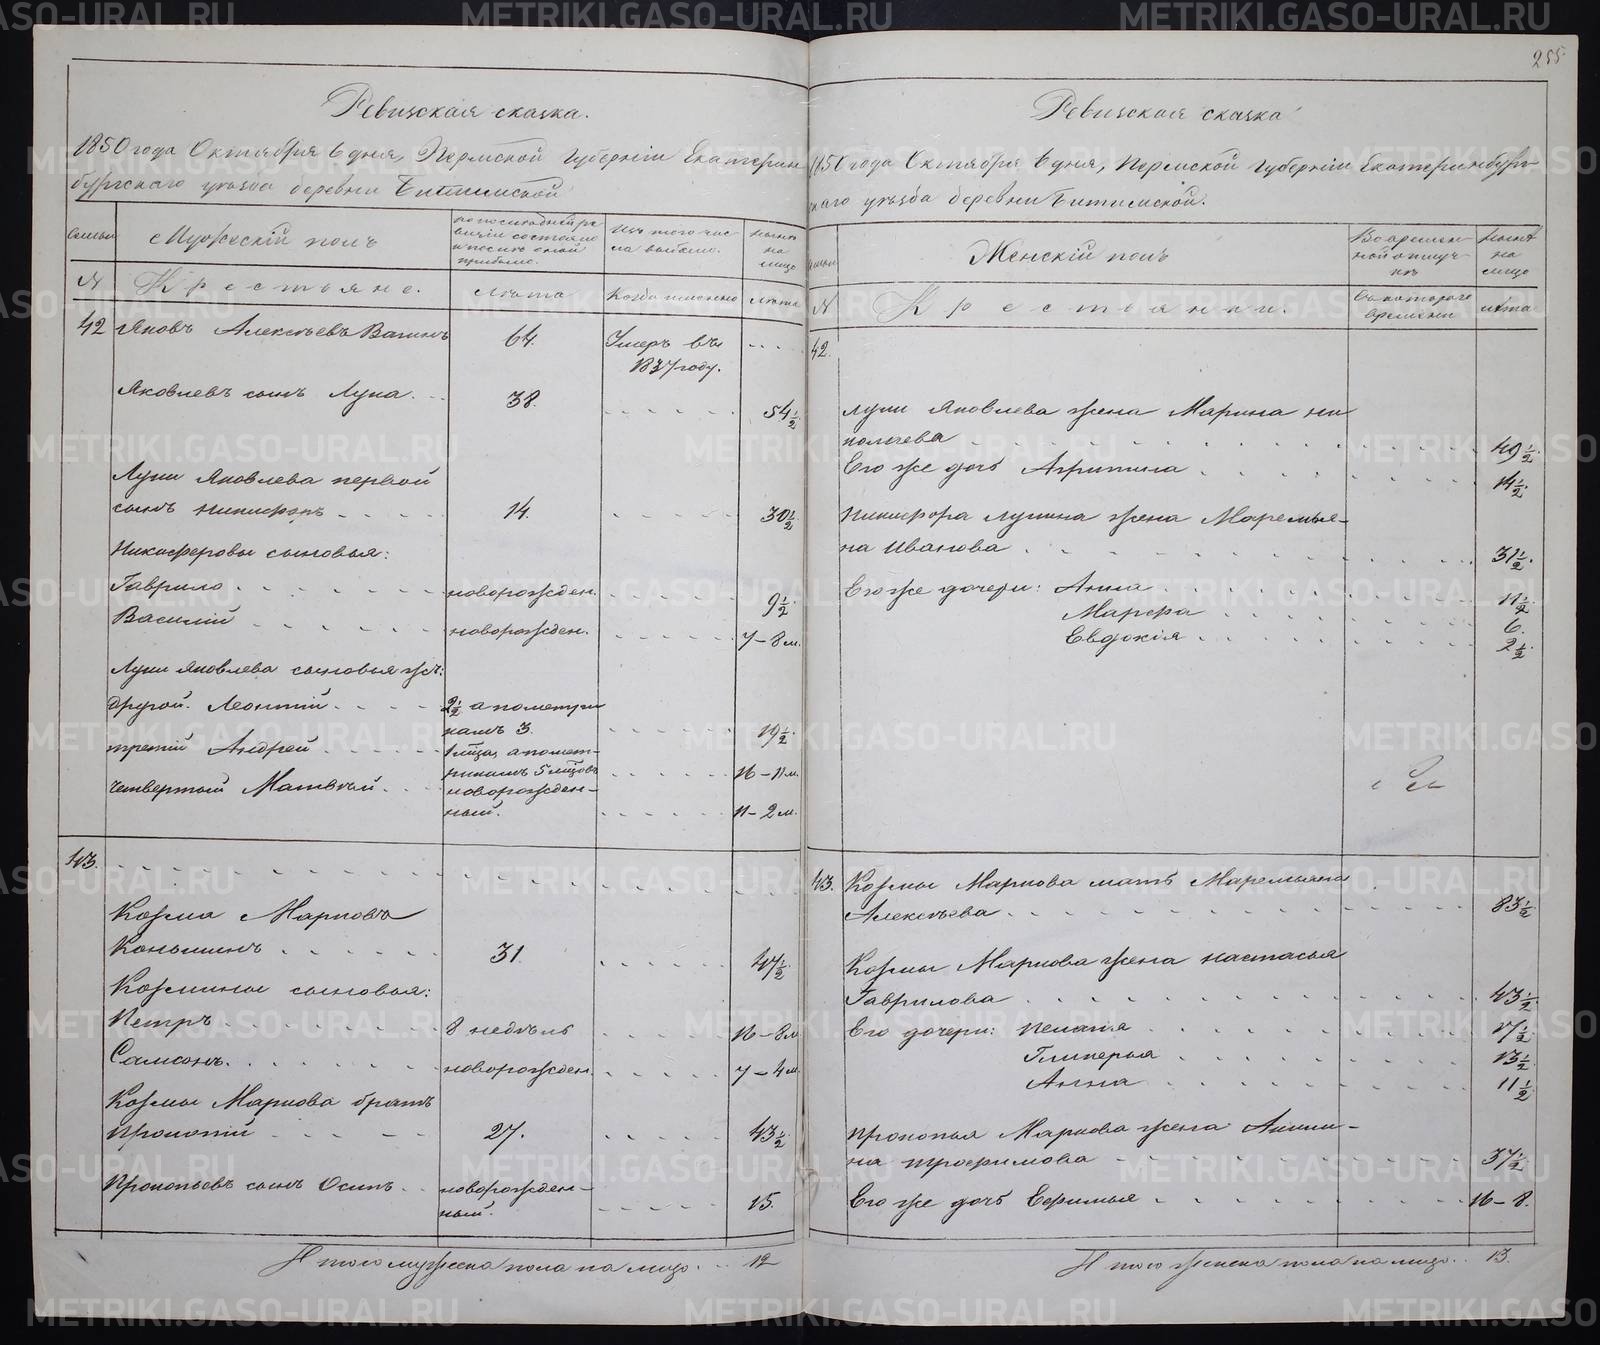 255
Ревизская сказка.
1850 года Октября 6 дня, Пермской губерніи Екатерин
бургскаго уѣзда деревни Битимской
Семьи
Мужескій полъ
по последней ре
визіи состояло
и после оной
прибыло.
Изъ того чис
ла выбыло.
нынѣ
на
лицо
№
Крестьяне.
Лѣта
Когда именно
Лѣта
42 Яковъ Алексѣевъ Вагинъ 64. Умеръ въ
1837 году.
Яковлевъ сынъ Лука. 38. 54 1/2
Луки Яковлева первой
сынъ Никифоръ 14. 30 1/2
Никифоровы сыновья:
Гаврило новорожден. 9 1/2
Василій новорожден. 7-8 м.
Луки Яковлева сыновья жъ:
другой. Леонтій 2 1/2 а по метри
камъ 3. 19 1/2
третій Андрей 1 мца, а по мет-
рикамъ 5 мцовъ 16-11 м.
четвертый Матвѣй новорожден-
ный. 11-2 м.
43.
Козма Марковъ
Коньшинъ 31 47 1/2
Козмины сыновья:
Петръ 8 недѣль 16-8 м
Самсонъ. новорожден. 7-4 м
Козмы Маркова братъ
Прокопій 27. 43 1/2
Прокопьевъ сынъ Осипъ новорожден-
ный. 15.
Итого мужеска пола на лицо 12
Ревизская сказка
1850 года Октября 6 дня, Пермской губерніи Екатеринбург
скаго уѣзда деревни Битимской.
Семьи
Женскій полъ
Во времен-
ной отлуч-
кѣ
нынѣ
на
лицо
№
Крестьянки.
Съ котораго
времени
лѣта
42.
Луки Яковлева жена Марина Ни
колаева 49 1/2
Его же дочь Агрипина 14 1/2
Никифора Лукина жена Маремья-
на Иванова 31 1/2
Его же дочери: Анна 11 1/2
Марфа 6.
Евдокія 2 1/2
43. Козмы Маркова мать Маремьяна
Алексѣева 83 1/2
Козмы Маркова жена Настасья
Гаврилова 43 1/2
Его дочери: Пелагія 17 1/2
Гликерья 13 1/2
Анна 11 1/2
Прокопья Маркова жена Акили-
на Трофимова 37 1/2
Его же дочь Ефимья 16-8.
Итого женска пола на лицо 13.
METRIKI.GASO-URAL.RU